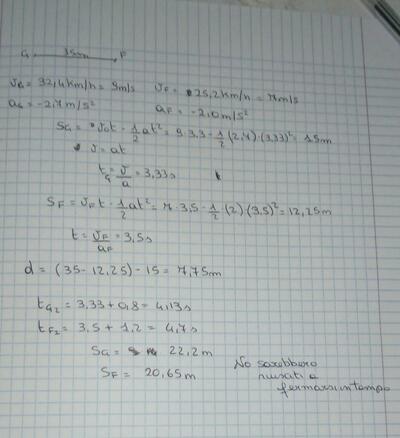 G 35m F
v_G = 32,4 km/h = 9 m/s v_F = 25,2 km/h = 7 m/s
a_G = -2,7 m/s² a_F = -2,0 m/s²
S_G = v_0t - 1/2 at² = 9·3,3 - 1/2 (2,7)·(3,33)² = 15m
v = at
t_G = v/a = 3,33s
S_F = v_F t - 1/2 at² = 7·3,5 - 1/2·(2)·(3,5)² = 12,25m
t = v_F/a_F = 3,5s
d = (35 - 12,25) - 15 = 7,75m
t_G2 = 3,33 + 0,8 = 4,13s
t_F2 = 3,5 + 1,2 = 4,7s
S_G = 22,2m
S_F = 20,65m
No sarebbero
riusciti a
fermarsi in tempo